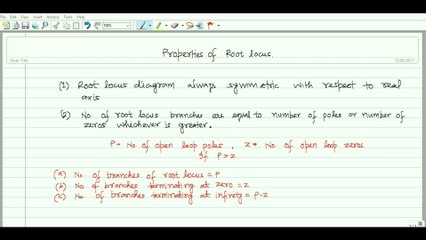 Properties of Root locus.
(1) Root locus diagram always symmetric with respect to real
axis
(2) No of root locus branches are equal to number of poles or number of
zeros whichever is greater.
P → No of open loop poles. Z → No of open loop zeros
If P > Z
(a) No of branches of root locus = P
(b) No of branches terminating at zero = Z
(c) No of branches terminating at infinity = P-Z